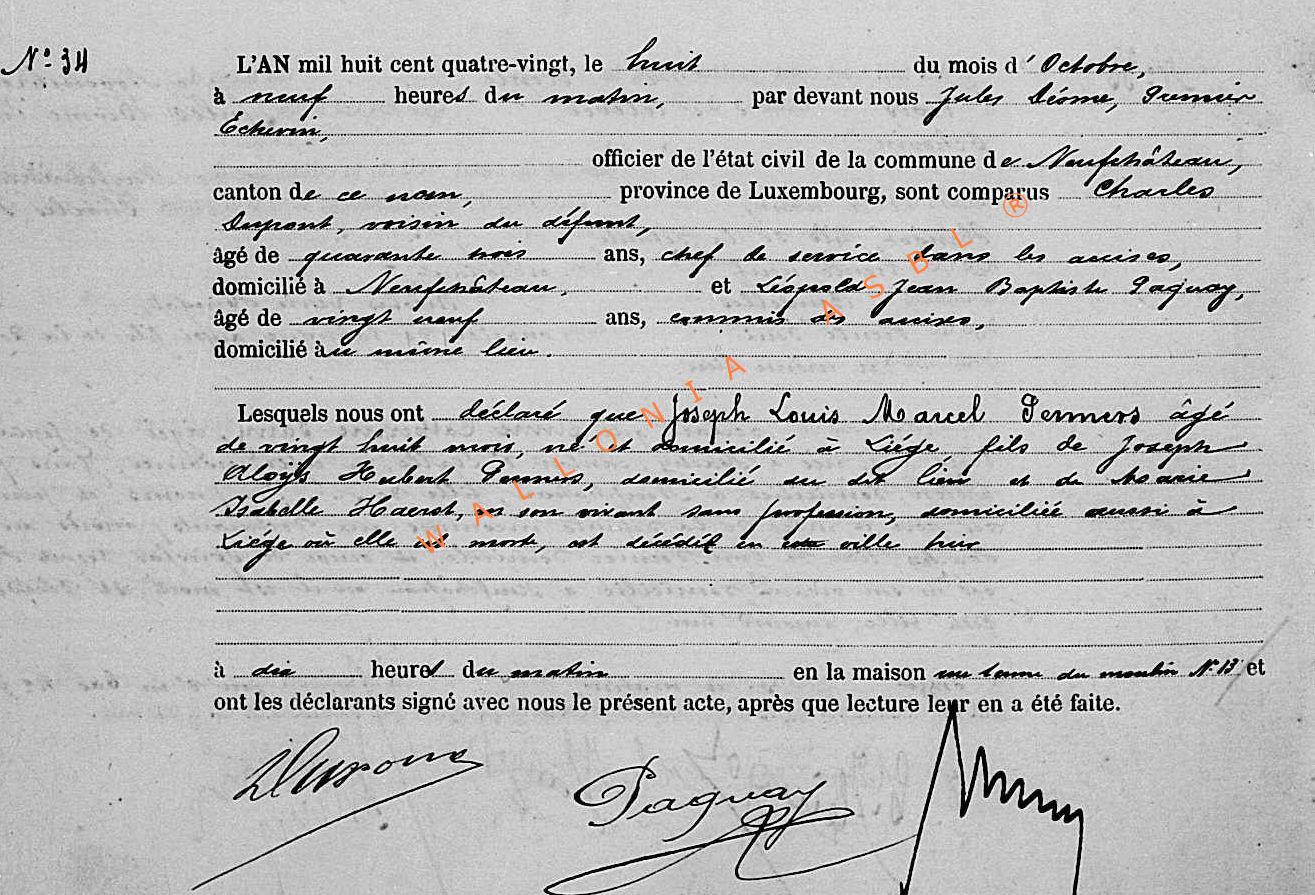 N° 34
L'AN mil huit cent quatre-vingt, le huit du mois d'Octobre,
à neuf heures du matin, par devant nous Jules Déome, Premier
Echevin,
officier de l'état civil de la commune de Neufchâteau,
canton de ce nom, province de Luxembourg, sont comparus Charles
Dupont, voisin du défunt,
âgé de quarante trois ans, chef de service dans les accises,
domicilié à Neufchâteau, et Léopold Jean Baptiste Paquay,
âgé de vingt neuf ans, commis des accises,
domicilié au même lieu.
Lesquels nous ont déclaré que Joseph Louis Marcel Penners âgé
de vingt huit mois, né et domicilié à Liége, fils de Joseph
Aloÿs Hubert Penners, domicilié au dit lieu et de Marie
Isabelle Haerst, en son vivant sans profession, domiciliée aussi à
Liége où elle est morte, est décédé en cette ville hier
à dix heures du matin en la maison du moulin N° 13 et
ont les déclarants signé avec nous le présent acte, après que lecture leur en a été faite.
Dupont
Paquay
WALLONIA ASBL ®